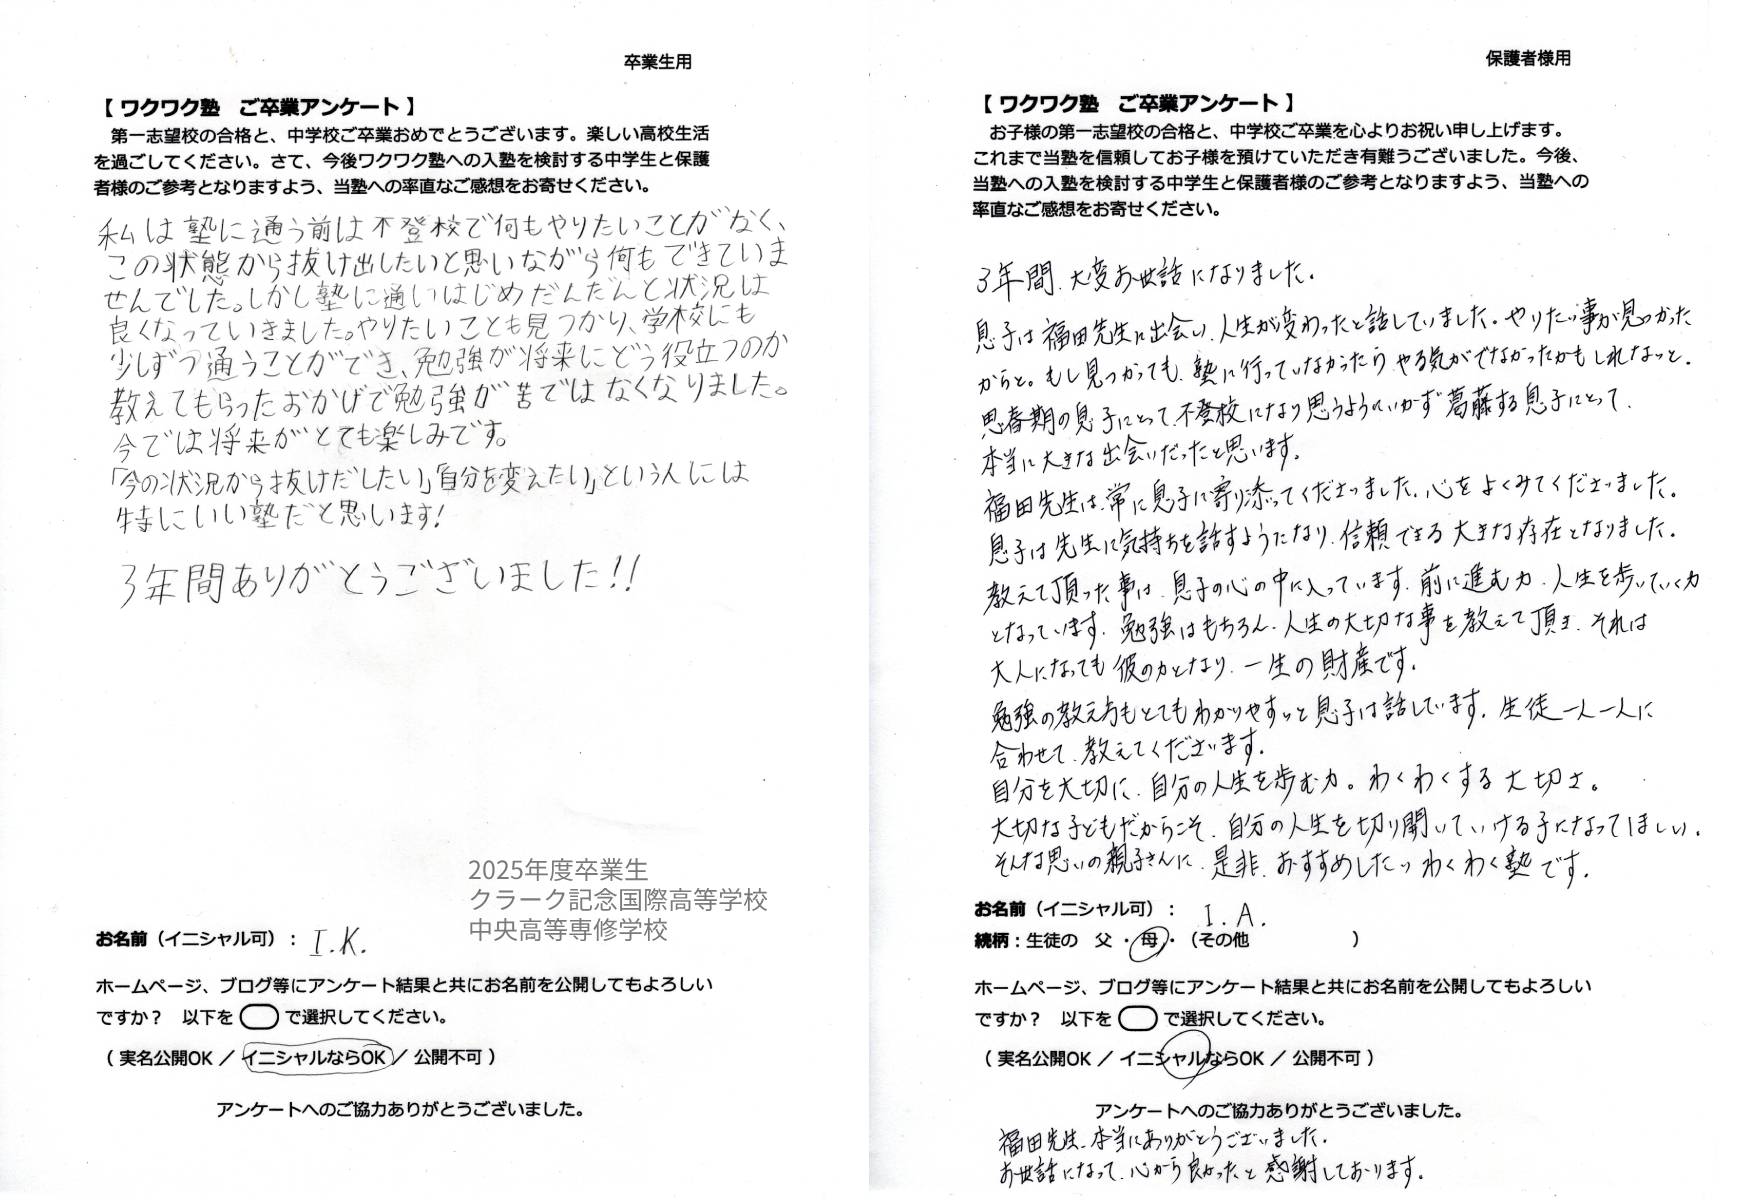 卒業生用
【 ワクワク塾　ご卒業アンケート 】
第一志望校の合格と、中学校ご卒業おめでとうございます。楽しい高校生活
を過ごしてください。さて、今後ワクワク塾への入塾を検討する中学生と保護
者様のご参考となりますよう、当塾への率直なご感想をお寄せください。
私は塾に通う前は不登校で何もやりたいことがなく、
この状態から抜け出したいと思いながら何もできていま
せんでした。しかし塾に通いはじめだんだんと状況は
良くなっていきました。やりたいことも見つかり、学校にも
少しずつ通うことができ、勉強が将来にどう役立つのか
教えてもらったおかげで勉強が苦ではなくなりました。
今では将来がとても楽しみです。
「今の状況から抜けだしたい」「自分を変えたい」という人には
特にいい塾だと思います!
3年間ありがとうございました!!
2025年度卒業生
クラーク記念国際高等学校
中央高等専修学校
お名前（イニシャル可）： I.K.
ホームページ、ブログ等にアンケート結果と共にお名前を公開してもよろしい
ですか？　以下を で選択してください。
（ 実名公開OK ／ イニシャルならOK ／ 公開不可 ）
アンケートへのご協力ありがとうございました。
保護者様用
【 ワクワク塾　ご卒業アンケート 】
お子様の第一志望校の合格と、中学校ご卒業を心よりお祝い申し上げます。
これまで当塾を信頼してお子様を預けていただき有難うございました。今後、
当塾への入塾を検討する中学生と保護者様のご参考となりますよう、当塾への
率直なご感想をお寄せください。
3年間、大変お世話になりました。
息子は福田先生に出会い、人生が変わったと話していました。やりたい事が見つかった
からと。もし見つかっても、塾に行っていなかったらやる気がでなかったかもしれないと。
思春期の息子にとって、不登校になり思うようにいかず葛藤する息子にとって、
本当に大きな出会いだったと思います。
福田先生は、常に息子に寄り添ってくださいました。心をよくみてくださいました。
息子は先生に気持ちを話すようになり、信頼できる大きな存在となりました。
教えて頂った事は、息子の心の中に入っています。前に進む力、人生を歩いていく力
となっています。勉強はもちろん、人生の大切な事を教えて頂き、それは
大人になっても彼の力となり、一生の財産です。
勉強の教え方もとてもわかりやすいと息子は話しています。生徒一人一人に
合わせて、教えてくださいます。
自分を大切に、自分の人生を歩む力。わくわくする大切さ。
大切な子どもだからこそ、自分の人生を切り開いていける子になってほしい。
そんな思いの親子さんに、是非、おすすめしたいわくわく塾です。
お名前（イニシャル可）： I.A.
続柄：生徒の　父 ・ 母 ・（その他　　　　　　）
ホームページ、ブログ等にアンケート結果と共にお名前を公開してもよろしい
ですか？　以下を で選択してください。
（ 実名公開OK ／ イニシャルならOK ／ 公開不可 ）
アンケートへのご協力ありがとうございました。
福田先生、本当にありがとうございました。
お世話になって、心から良かったと感謝しております。